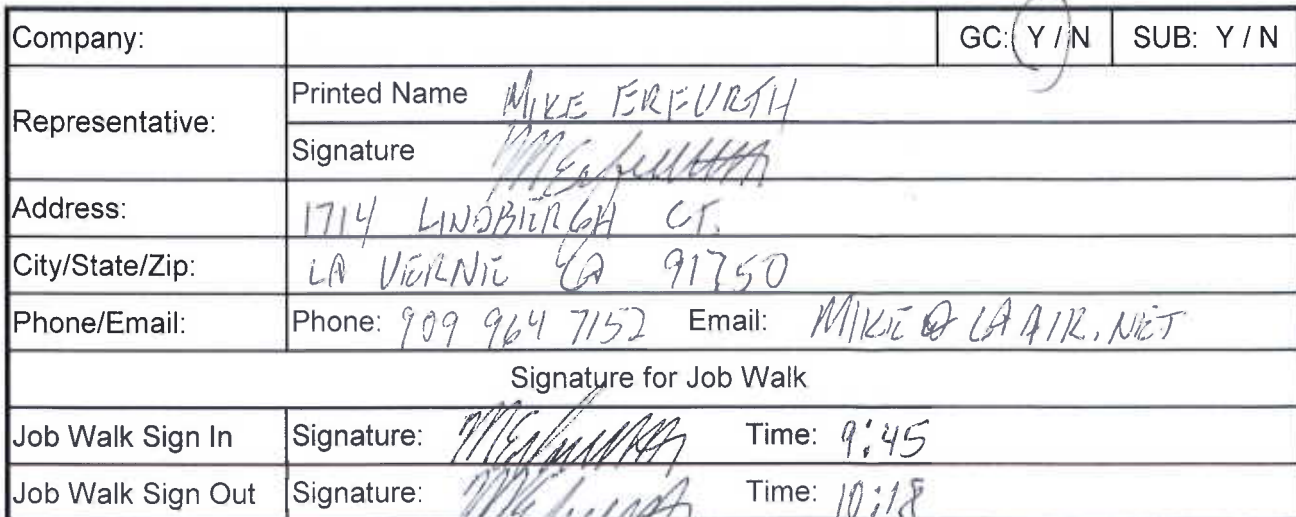 Company: GC: Y / N SUB: Y / N
Representative:
Printed Name MIKE ERFURTH
Signature
Address: 1714 LINDBERGH CT.
City/State/Zip: LA VERNE CA 91750
Phone/Email: Phone: 909 964 7152 Email: MIKE@LAAIR.NET
Signature for Job Walk
Job Walk Sign In Signature: Time: 9:45
Job Walk Sign Out Signature: Time: 10:18